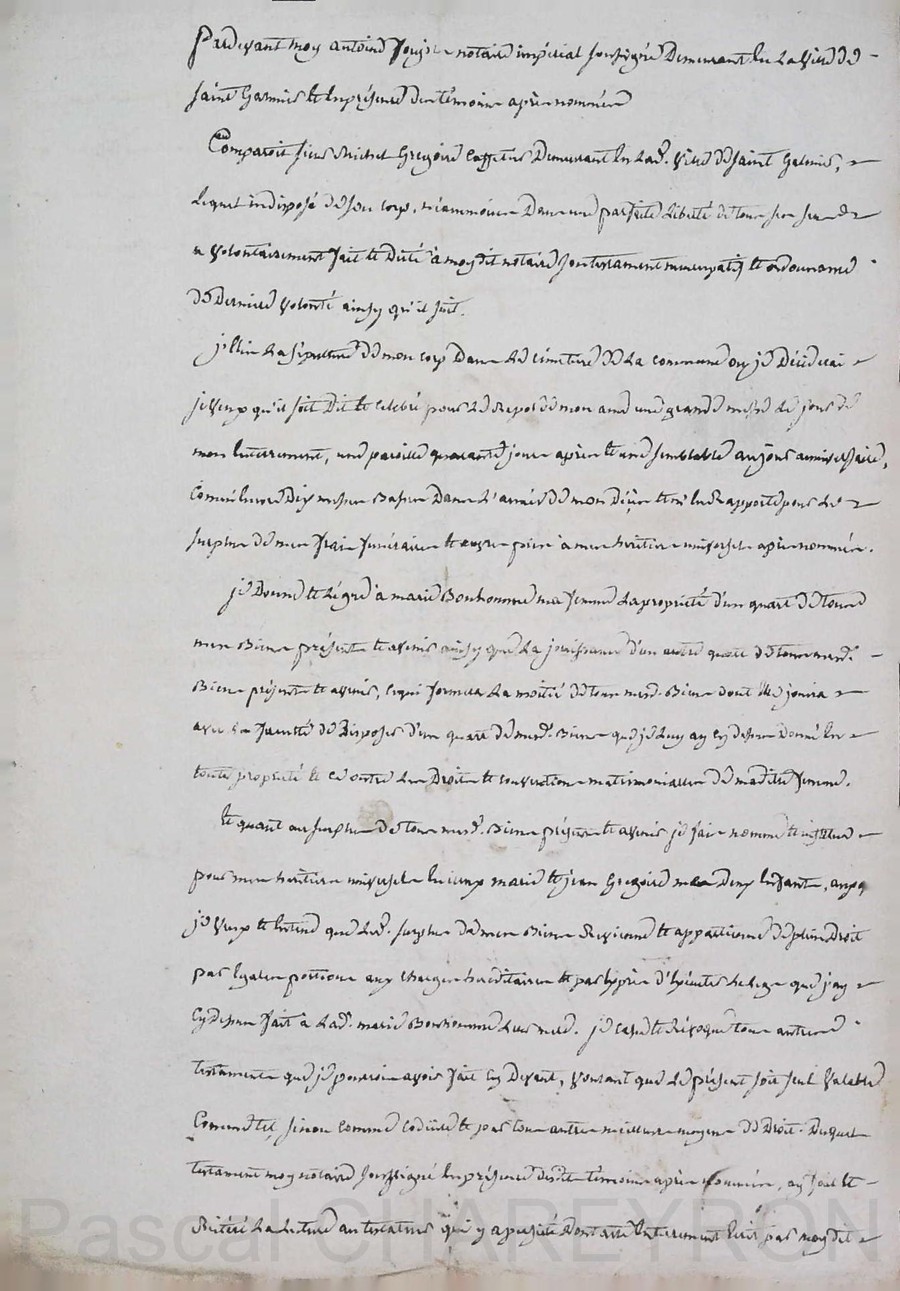 Pardevant moy antoine notaire impérial soussigné Demeurant en La ville de
saint Galmier et En présence des témoins après nommés
Comparoit sieur Michel Gregoire Caffetier Demeurant En Lad. ville de saint Galmier,
Lequel indisposé de son corps, néammoins Dans une parfaite Liberté de tous ses sens
a volontairement fait et Dicté à moy dit notaire son testament nuncupatif et ordonnance
de Derniere volonté ainsy qu'il suit.
j'Elis La sépulture de mon corps Dans Le cimetiere de La commune ou je Décéderai
je veux qu'il soit Dit et Celebré pour Le repos de mon ame une grande messe Le jour de
mon Enterrement, une pareille quarante jours après et une semblable au jour anniversaire,
Comme Encore Dix messes Basses Dans L'année de mon Décès et m'En rapporte pour Le
surplus de mes frais funéraires et œuvres pies à mes heritiers universels après nommés.
je Donne et Légue à marie Bonhomme ma femme La propriété d'un quart de tous
mes Biens présents et avenir ainsy que La jouissance d'un autre quart de tous mesd.
Biens présents et avenir, ce qui formera La moitié de tous mesd. Biens dont Elle jouira
avec La faculté de Disposer d'un quart de mesd. Biens que je Luy ay cy dessus donné En
toute propriété et ce outre Les Droits et convention matrimoniaux de madite femme.
Et quant au surplus de tous mesd. Biens présents et avenir je fais nomme et institue
pour mes heritiers universels Marie et jean Gregoire mes Deux Enfants, auxq
je veux et Entend que Led. surplus de mes Biens Revienne et appartienne de plein Droit
par Egales portions aux charges héréditaires et par Exprès d'Exécuter Le Legs que j'ay
Cy dessus fait à Lad. marie Bonhomme Leur mere. je casse et Révoque tous autres
testaments que je pourrois avoir fait Cy Devant, voulant que Le présent soit seul valable
Comme tel, sinon comme codicile et par tous autres meilleurs moyens de Droit. Duquel
testament moy notaire soussigné En présence desdits témoins après nommés, ay fait et
Réitéré La Lecture au testateur qui y a persisté Dont acte Entierement Ecrit par moy dit
Pascal CHAREYRON